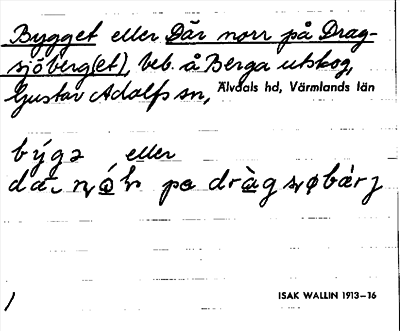 Bygget eller Där norr på Drag-
sjöberg(et), beb. å Berga utskog,
Gustav Adolfs sn, Älvdals hd, Värmlands län
býgə eller
pə dràgsɲøbærj
/
ISAK WALLIN 1913–16